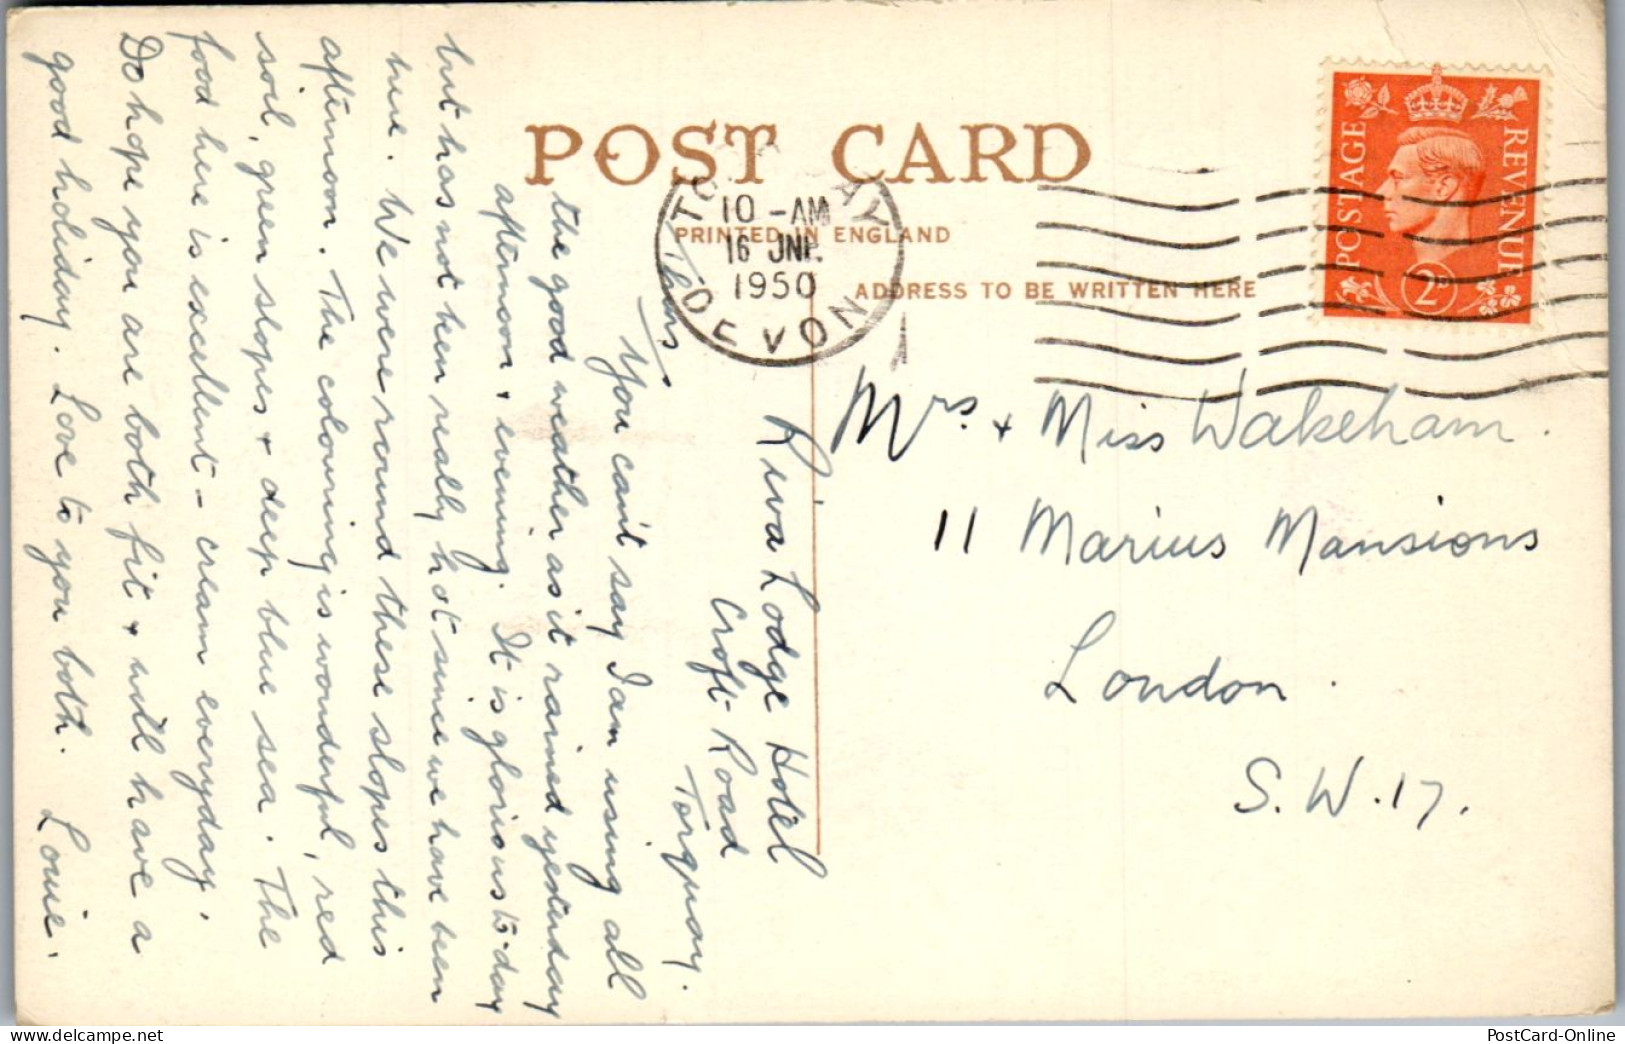 POST CARD
PRINTED IN ENGLAND
ADDRESS TO BE WRITTEN HERE
10 - AM
16 JNE
1950
DEVON
POSTAGE
REVENUE
2D
Mrs. + Miss Wakeham.
11 Marius Mansions
London.
S.W.17.
Riva Lodge Hotel
Croft Road
Torquay.
Thurs
You can't say I am using all
the good weather as it rained yesterday
afternoon + evening. It is glorious to-day
but has not been really hot since we have been
here. We were round these slopes this
afternoon. The colouring is wonderful, red
soil, green slopes + deep blue sea. The
food here is excellent - cream everyday.
Do hope you are both fit + will have a
good holiday. Love to you both. Louie.
PostCard-Online